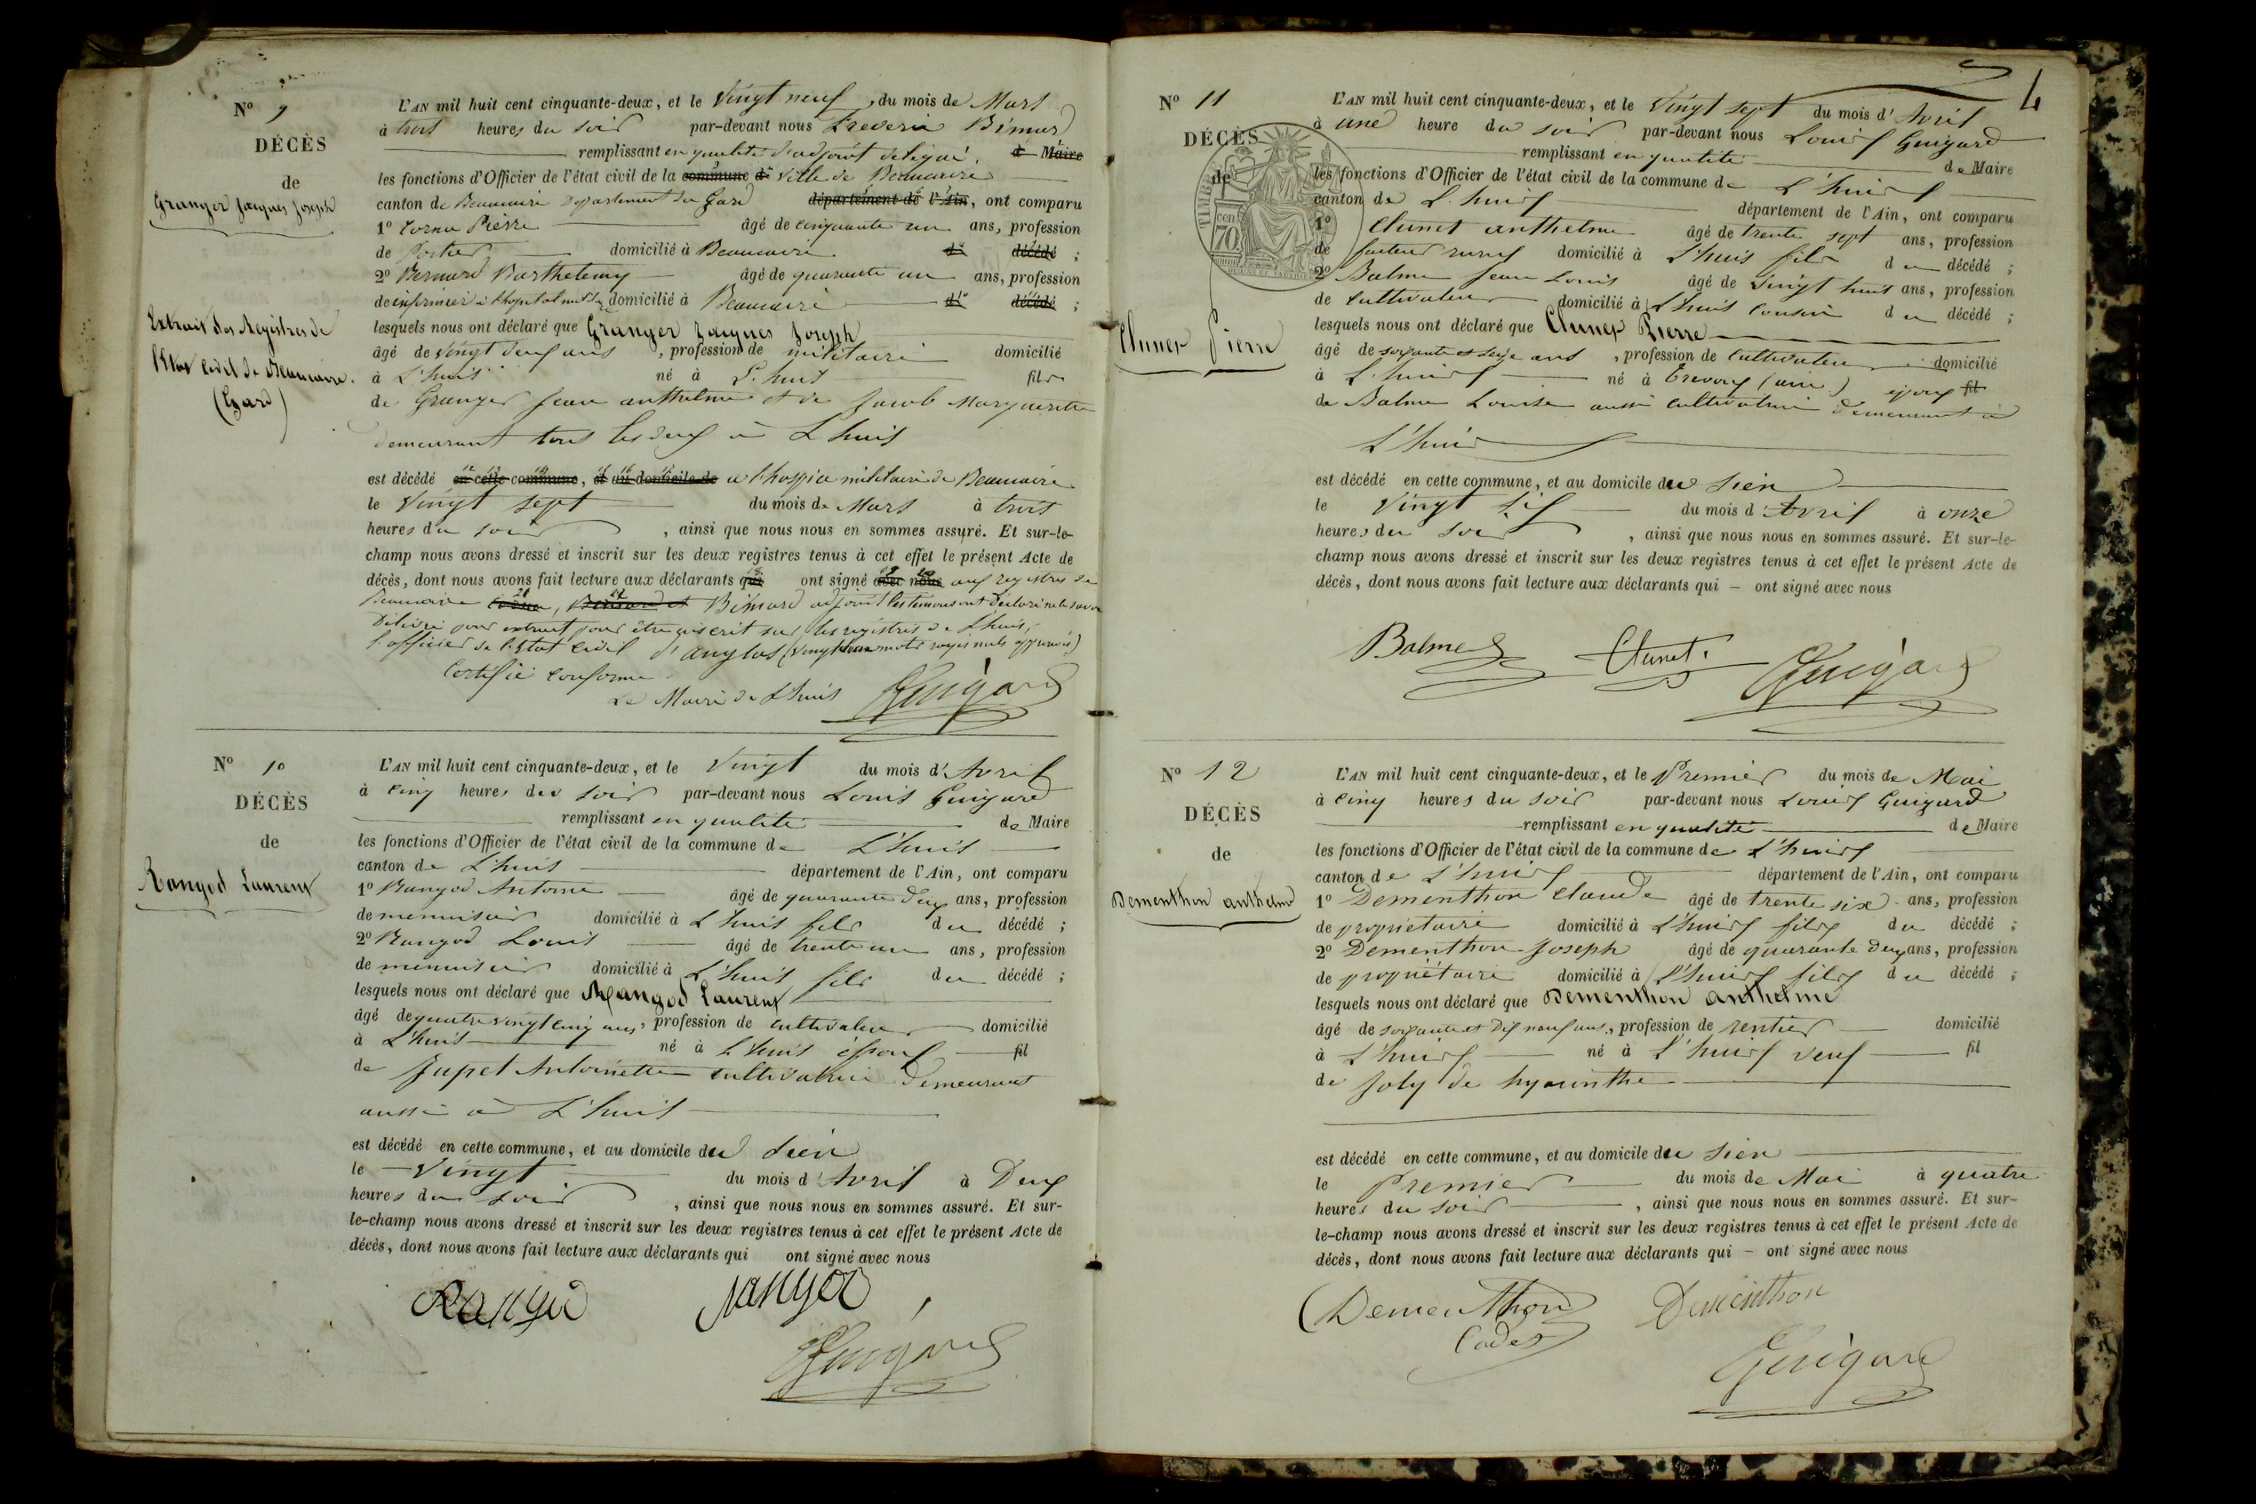 N° 9
DÉCÈS
de
Granger Jacques Joseph
Extrait des Registres de
l'Etat Civil de Beaucaire.
(Gard)
L'AN mil huit cent cinquante-deux, et le Vingt neuf, du mois de Mars
à trois heures du soir par-devant nous Bimard
remplissant en qualité d'adjoint délégué. d Maire
les fonctions d'Officier de l'état civil de la commune d ville de Beaucaire
canton de Beaucaire département du Gard département de l'Ain, ont comparu
1° Cornu Pierre âgé de cinquante un ans, profession
de Portier domicilié à Beaucaire d décédé ;
2° Bernard Barthelemy âgé de quarante un ans, profession
de infirmier à l'hopital domicilié à Beaucaire d décédé ;
lesquels nous ont déclaré que Granger Jacques Joseph
âgé de vingt deux ans, profession de militaire domicilié
à L'huis né à L'huis fils
de Granger Jean anthelme et de Jacob Marguerite
demeurant tous les deux à L'huis
est décédé en cette commune, et au domicile de a l'hospice militaire de Beaucaire
le Vingt sept du mois de Mars à trois
heures du soir, ainsi que nous nous en sommes assuré. Et sur-le-
champ nous avons dressé et inscrit sur les deux registres tenus à cet effet le présent Acte de
décès, dont nous avons fait lecture aux déclarants qui ont signé avec nous aux registres de
Beaucaire Cornu, Bernard et Bimard adjoint les témoins ont déclaré ne le savoir
Délivré pour extrait pour être inscrit sur les registres de L'huis,
l'officier de l'Etat Civil d'anglas (vingt mots rayés nuls approuvés)
Certifié Conforme
Le Maire de L'huis Guigard
N° 10
DÉCÈS
de
Rangod Laurent
L'AN mil huit cent cinquante-deux, et le Vingt du mois d'Avril
à cinq heures du soir par-devant nous Louis Guigard
remplissant en qualité de Maire
les fonctions d'Officier de l'état civil de la commune de L'huis
canton de L'huis département de l'Ain, ont comparu
1° Rangod Antoine âgé de quarante deux ans, profession
de menuisier domicilié à L'huis fils du décédé ;
2° Rangod Louis âgé de trente un ans, profession
de menuisier domicilié à L'huis fils du décédé ;
lesquels nous ont déclaré que Rangod Laurent
âgé de quatre vingt cinq ans, profession de cultivateur domicilié
à L'huis né à L'huis époux fil
de Jupet Antoinette cultivatrice demeurant
aussi à L'huis
est décédé en cette commune, et au domicile du sien
le Vingt du mois d'Avril à Deux
heures du soir, ainsi que nous nous en sommes assuré. Et sur-
le-champ nous avons dressé et inscrit sur les deux registres tenus à cet effet le présent Acte de
décès, dont nous avons fait lecture aux déclarants qui ont signé avec nous
Rangod Rangod
Guigard
4
N° 11
DÉCÈS
de
Clunet Pierre
L'AN mil huit cent cinquante-deux, et le Vingt sept du mois d'Avril
à une heure du soir par-devant nous Louis Guigard
remplissant en qualité de Maire
les fonctions d'Officier de l'état civil de la commune de L'huis
canton de L'huis département de l'Ain, ont comparu
1° Clunet anthelme âgé de trente sept ans, profession
de facteur rural domicilié à L'huis fils du décédé ;
2° Balme Jean Louis âgé de Vingt huit ans, profession
de Cultivateur domicilié à L'huis Cousin du décédé ;
lesquels nous ont déclaré que Clunet Pierre
âgé de soixante et seize ans, profession de Cultivateur domicilié
à L'huis né à Trevoux (ain) époux fil
de Balme Louise aussi cultivatrice demeurant à
L'huis
est décédé en cette commune, et au domicile du sien
le Vingt six du mois d'Avril à onze
heures du soir, ainsi que nous nous en sommes assuré. Et sur-le-
champ nous avons dressé et inscrit sur les deux registres tenus à cet effet le présent Acte de
décès, dont nous avons fait lecture aux déclarants qui – ont signé avec nous
Balme Clunet Guigard
N° 12
DÉCÈS
de
Dementhon anthelme
L'AN mil huit cent cinquante-deux, et le Premier du mois de Mai
à cinq heures du soir par-devant nous Louis Guigard
remplissant en qualité de Maire
les fonctions d'Officier de l'état civil de la commune de L'huis
canton de L'huis département de l'Ain, ont comparu
1° Dementhon Claude âgé de trente six ans, profession
de propriétaire domicilié à L'huis fils du décédé ;
2° Dementhon Joseph âgé de quarante deux ans, profession
de propriétaire domicilié à L'huis fils du décédé ;
lesquels nous ont déclaré que Dementhon anthelme
âgé de soixante et dix neuf ans, profession de rentier domicilié
à L'huis né à L'huis veuf fil
de Joly de hyacinthe
est décédé en cette commune, et au domicile du sien
le Premier du mois de Mai à quatre
heures du soir, ainsi que nous nous en sommes assuré. Et sur-
le-champ nous avons dressé et inscrit sur les deux registres tenus à cet effet le présent Acte de
décès, dont nous avons fait lecture aux déclarants qui – ont signé avec nous
Dementhon Dementhon
Cadet
Guigard